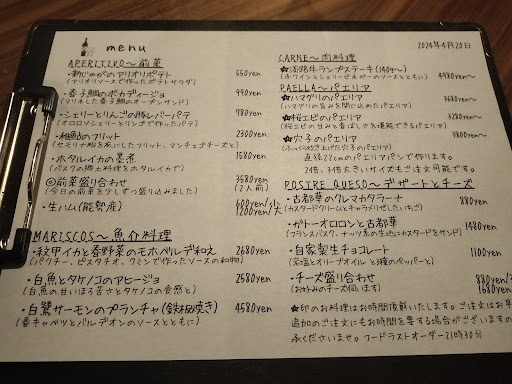 menu
2024年4月20日
APERITIVO〜前菜
・新じゃがのアリオリポテト 550yen
(アリオリソースで作ったポテトサラダ)
・春子鯛のボカディージョ 990yen
(マリネした春子鯛のオープンサンド)
・シェリーとりんごの豚レバーパテ 980yen
(オロロソシェリーとリンゴで作ったパテ)
・稚鮎のフリット 2300yen
(セモリナ粉を衣にしたフリット、マンチェゴチーズと)
・ホタルイカの墨煮 1580yen
(バスクの郷土料理をホタルイカで)
◎前菜盛り合わせ 3580yen
(今日の前菜を少しずつ盛り込みました) (2人前)
・生ハム(能勢産) 600yen/小
1200yen/大
MARISCOS〜魚介料理
・紋甲イカと春野菜のモホベルデ和え 2680yen
(パクチー、ピスタチオ、クミンで作ったソースの和物)
・白魚とタケノコのアヒージョ 2580yen
(白魚の甘いほろ苦さとタケノコの食感と)
・白鷺サーモンのプランチャ(鉄板焼き) 4580yen
(春キャベツとバルデオンのソースとともに)
CARNE〜肉料理
★淡路牛ランプステーキ(140g〜) 4980yen〜
(赤ワインとシェリービネガーのソースとともに)
PAELLA〜パエリア
★ハマグリのパエリア 3680yen〜
(ハマグリの旨みを閉じ込めたパエリア)
★桜エビのパエリア 3280yen〜
(桜エビの甘みと香ばしさを堪能できるパエリア)
★穴子のパエリア 3800yen〜
(ふっくら炊き上げた穴子のパエリア)
直径22cmのパエリアパンで作ります。
2倍、3倍大きいサイズもご注文可能です。
POSTRE QUESO〜デザートとチーズ
・古都華のクレマカタラーナ 880yen
(カスタードクリームとキャラメリゼしたいちご)
・ガトーオロロンと古都華 1480yen
(フランスバスク、ナッツ系の生地にカスタードをサンド)
・自家製生チョコレート 1100yen
(岩塩とオリーブオイルと3種のペッパーと)
・チーズ盛り合わせ 880yen/
(お好みのチーズ伺います) 1680yen
★印のお料理はお時間頂戴いたします。ご注文はお早
追加のご注文にもお時間を要する場合がございますの
承くださいませ。フードラストオーダー21時30分